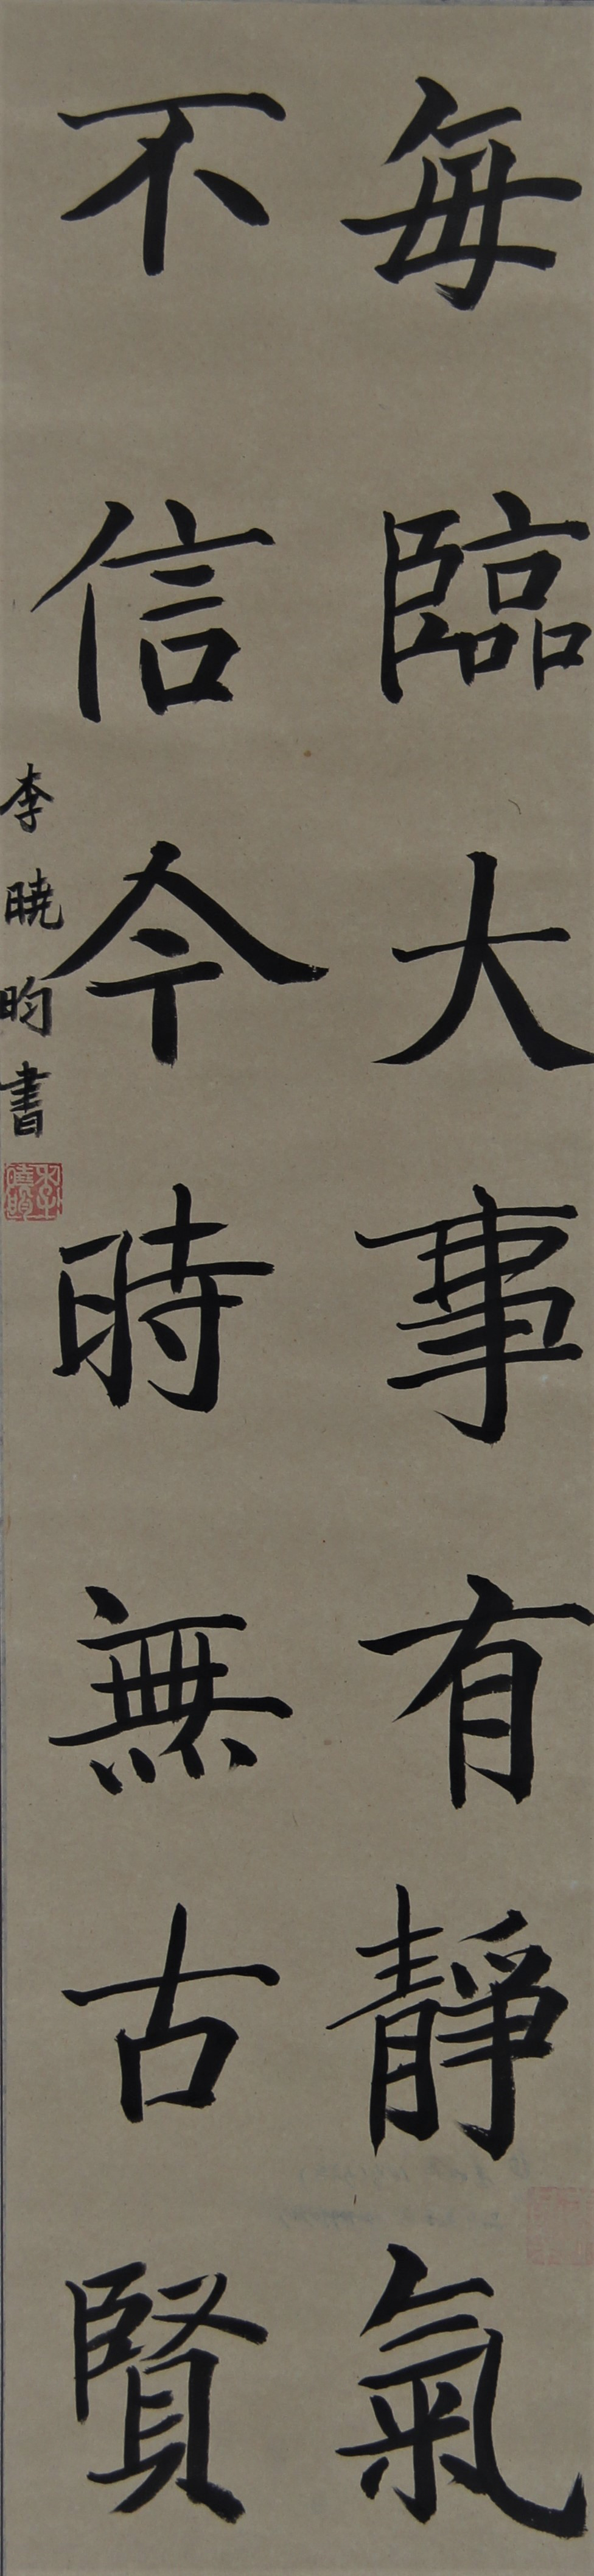 每臨大事有靜氣
不信今時無古賢
李曉昀書